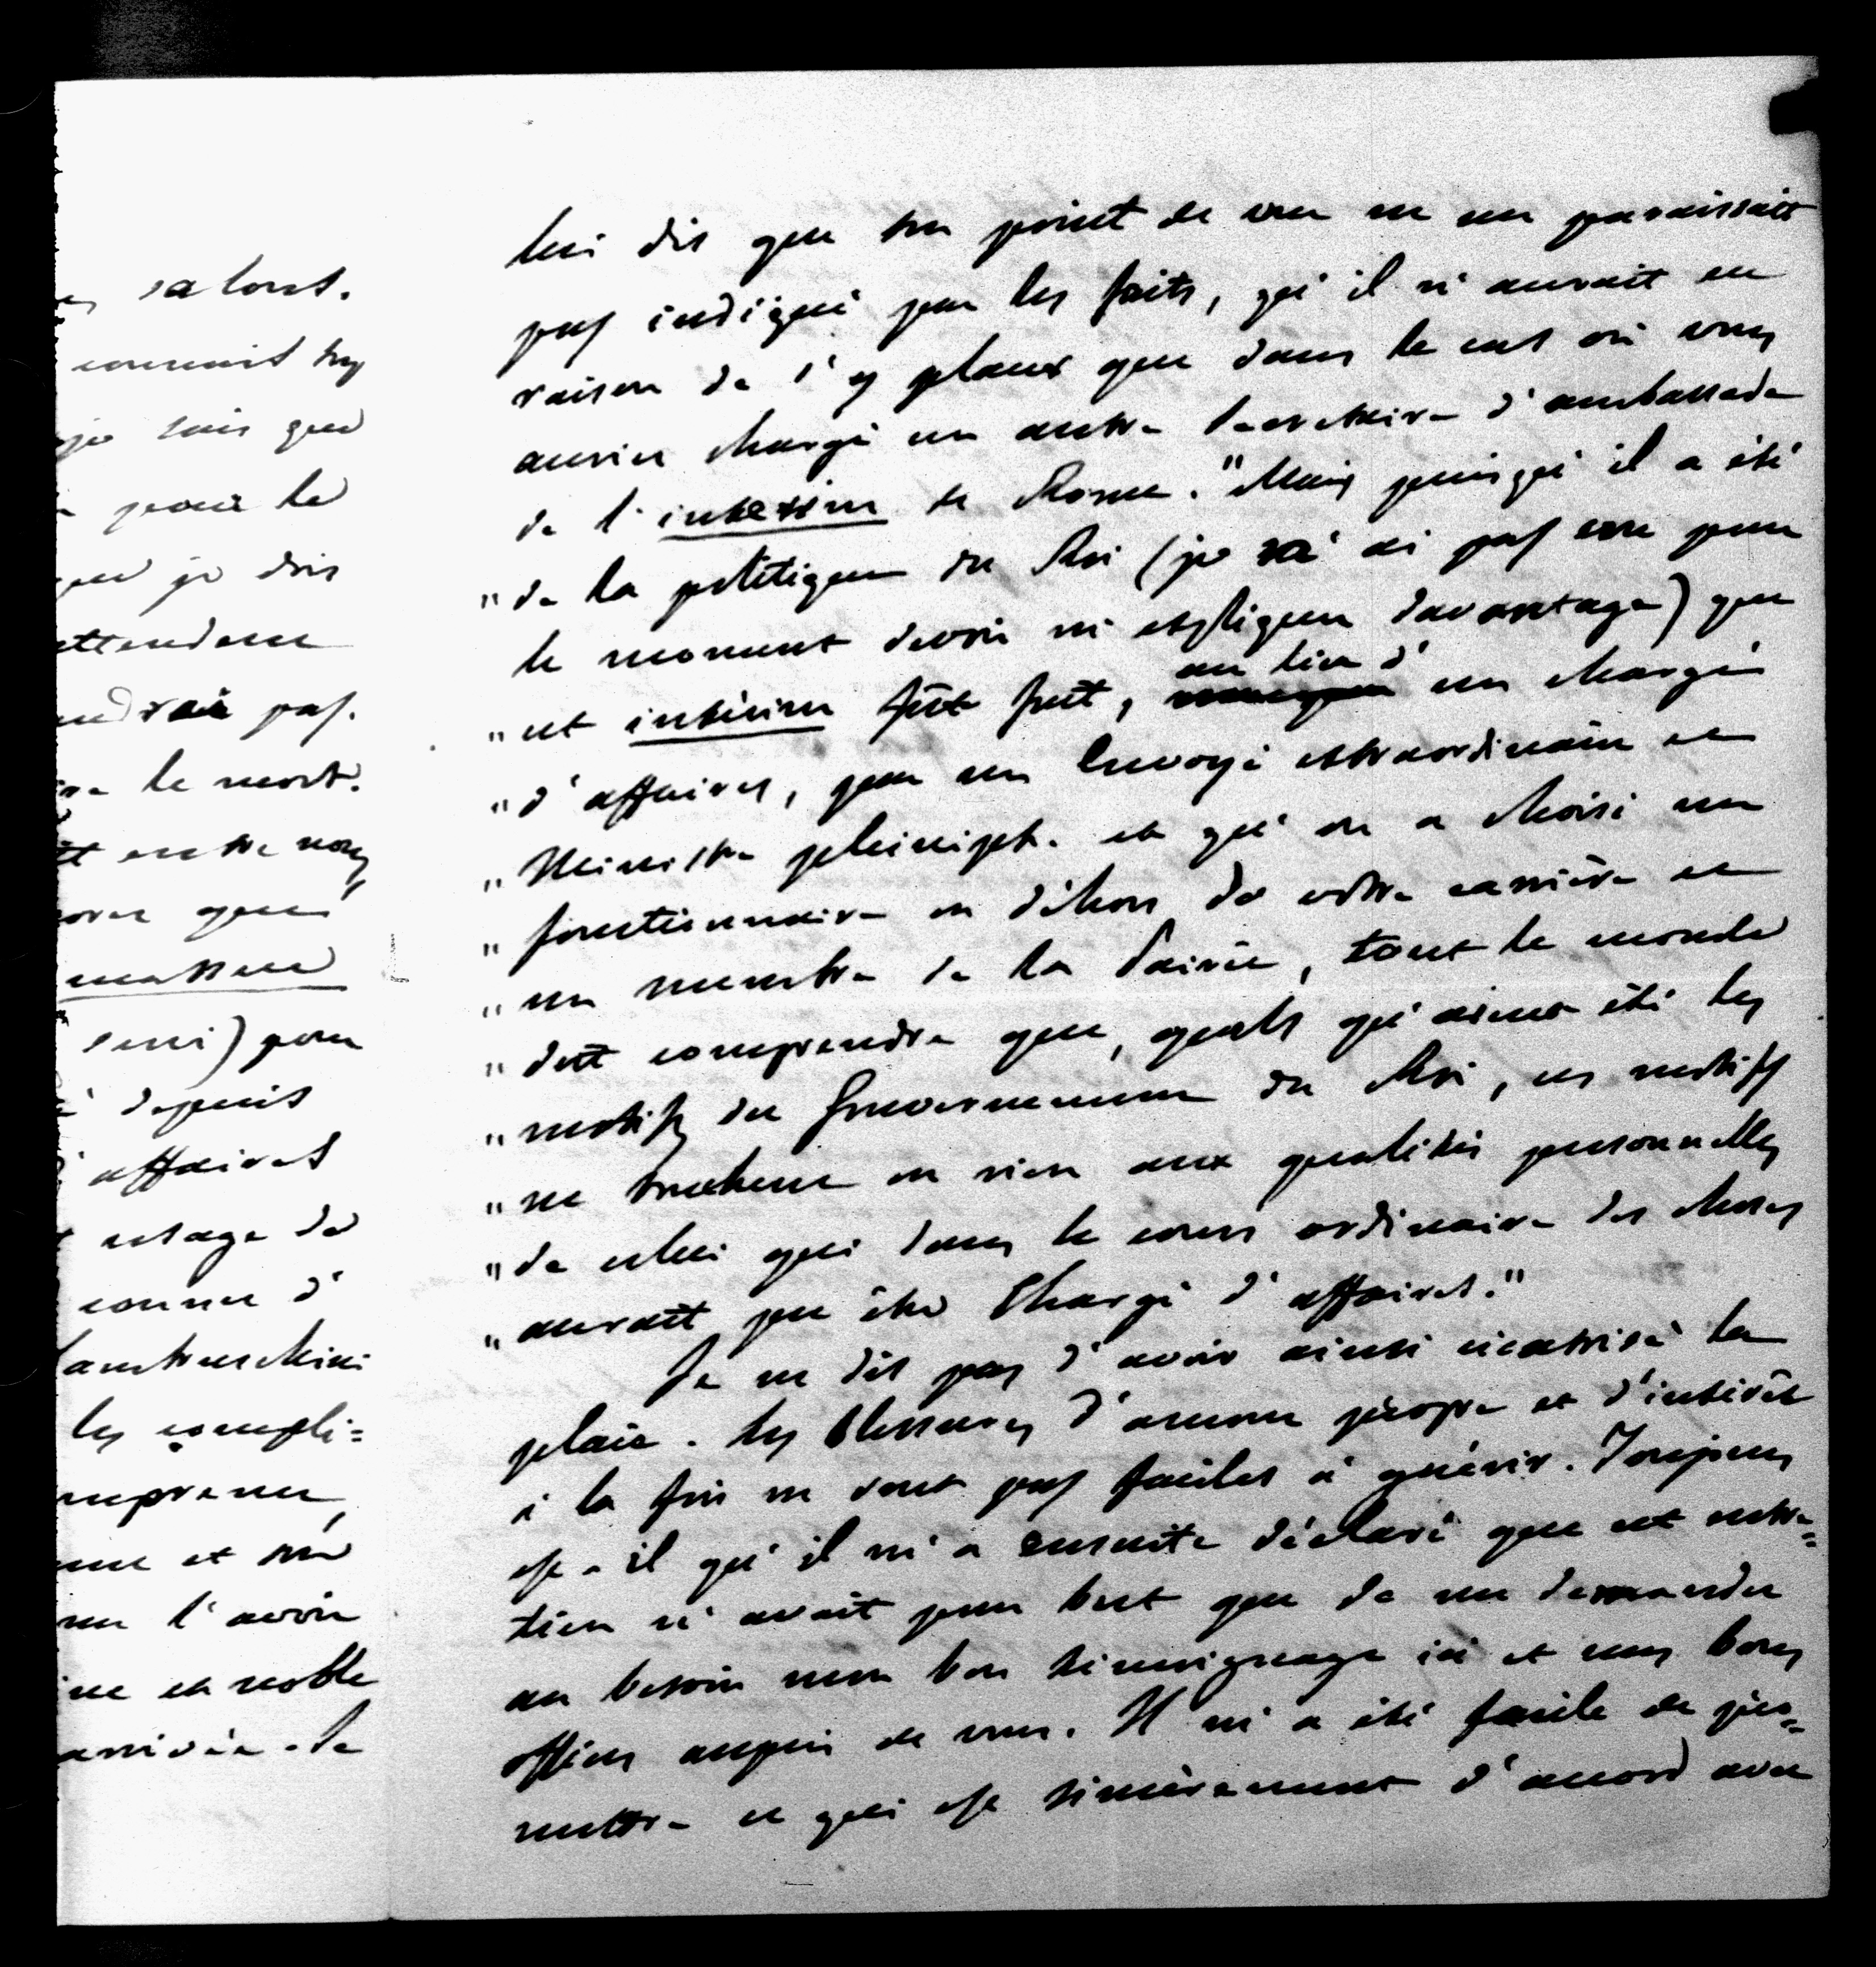 sa lourd.
connait trop
je sais que
pour le
que je dois
attendene
pas.
le mort.
entre nous,
que
) pour
depuis
affaires
usage de
comme d'
Lambruschini
les compli=
et
l'avoir
et noble
arrivée. le
lui dis que son point de vue ne me paraissait
pas indiqué par les faits, qu'il n'aurait eu
raison de s'y placer que dans le cas où vous
auriez chargé un autre Secrétaire d'ambassade
de l'intérim de Rome. "Mais puisqu'il a été
"de la politique du Roi (je n'ai pas cru pour
le moment devoir m'expliquer davantage) que
"cet intérim fût fait, au lieu d'un chargé
"d'affaires, par un Envoyé extraordinaire et
"Ministre plénipot. et qu'on a choisi un
"fonctionnaire en dehors de votre carrière et
"un membre de la Pairie, tout le monde
"doit comprendre que, quels qu'aient été les
"motifs du Gouvernement du Roi, ces motifs
"ne touchent en rien aux qualités personnelles
"de celui qui dans le cours ordinaire des choses
"aurait pu être Chargé d'affaires."
Je ne dis pas d'avoir ainsi cicatrisé la
plaie. Les blessures d'amour propre et d'intérêt
à la fois ne sont pas faciles à guérir. Toujours
est-il qu'il m'a ensuite déclaré que cet entre=
tien n'avait pour but que de me demander
au besoin mon bon témoignage ici et mes bons
offices auprès de vous. Il m'a été facile de pro=
mettre ce qui est sincèrement d'accord avec